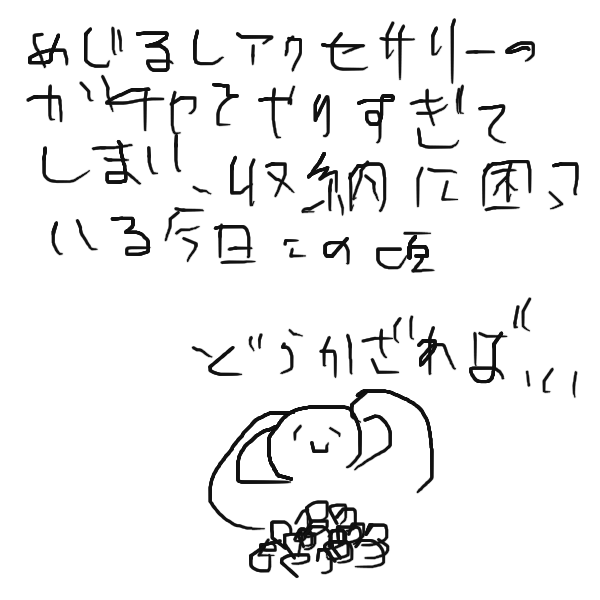 めじるしアクセサリーの
ガチャをやりすぎて
しまい、収納に困って
いる今日この頃
どうかざればいい